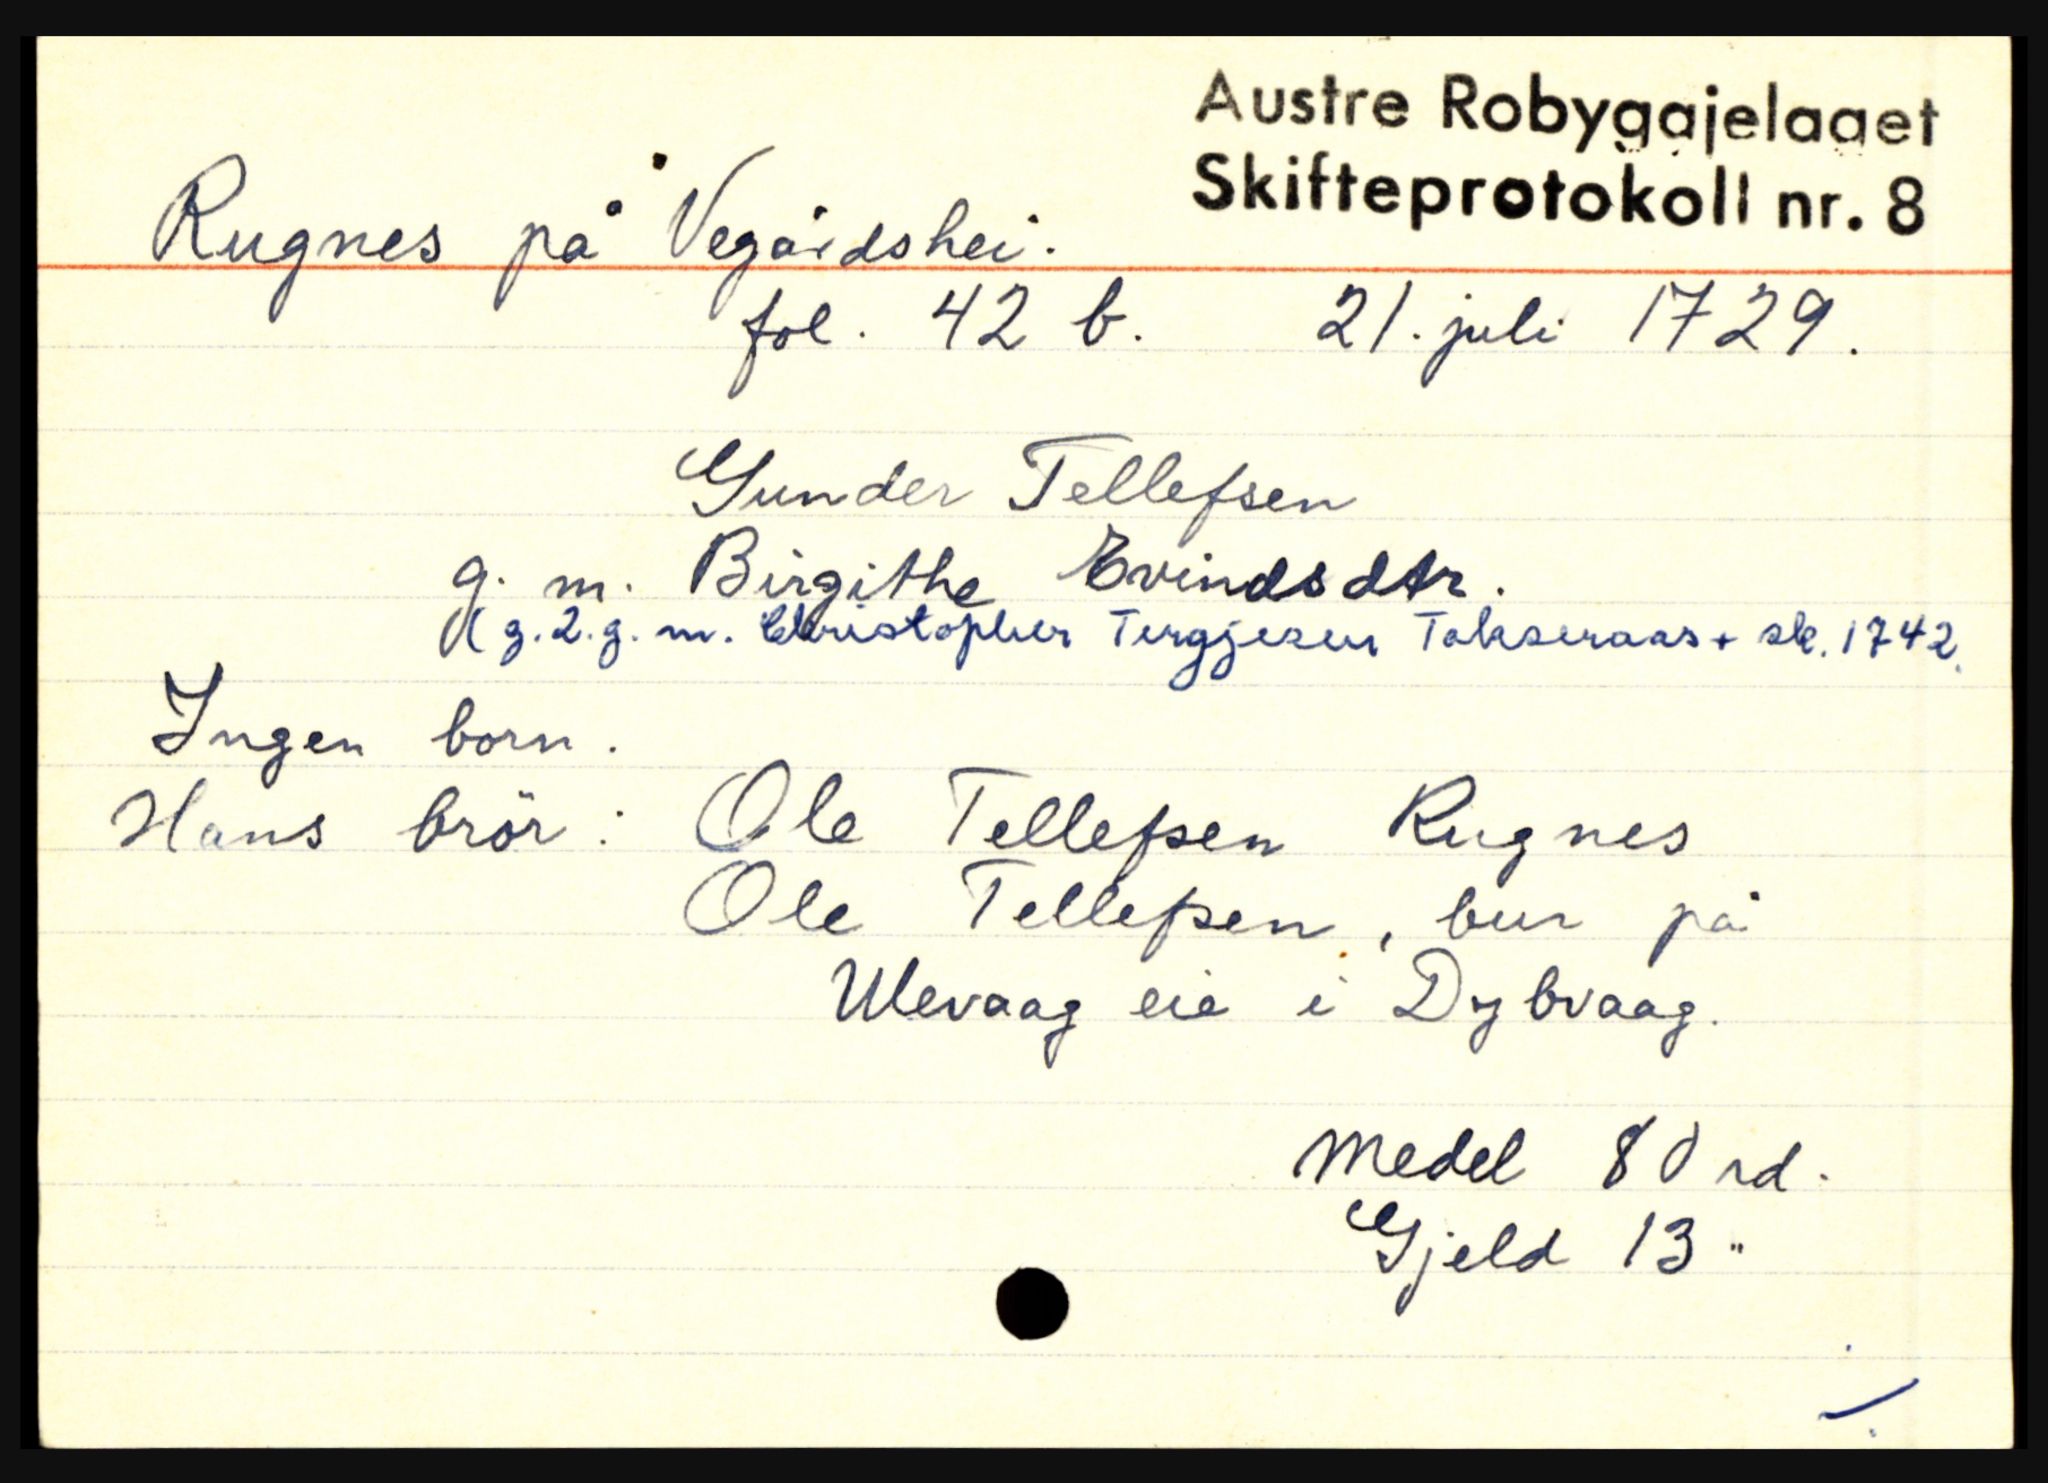 Austre Robygajelaget
Skifteprotokoll nr. 8
Rugnes på Vegårdshei.
fol. 42 b. 21. juli 1729.
Gunder Tellefsen
g. m. Birgithe Evindsdtr.
(g.2.g. m. Christopher Tergjesen Takseraas + sk. 1742.
Ingen born.
Hans brör: Ole Tellefsen Rugnes
Ole Tellefsen, bur på
Ulevaag eie i Dybvaag.
Medel 80 rd.
Gjeld 13 "